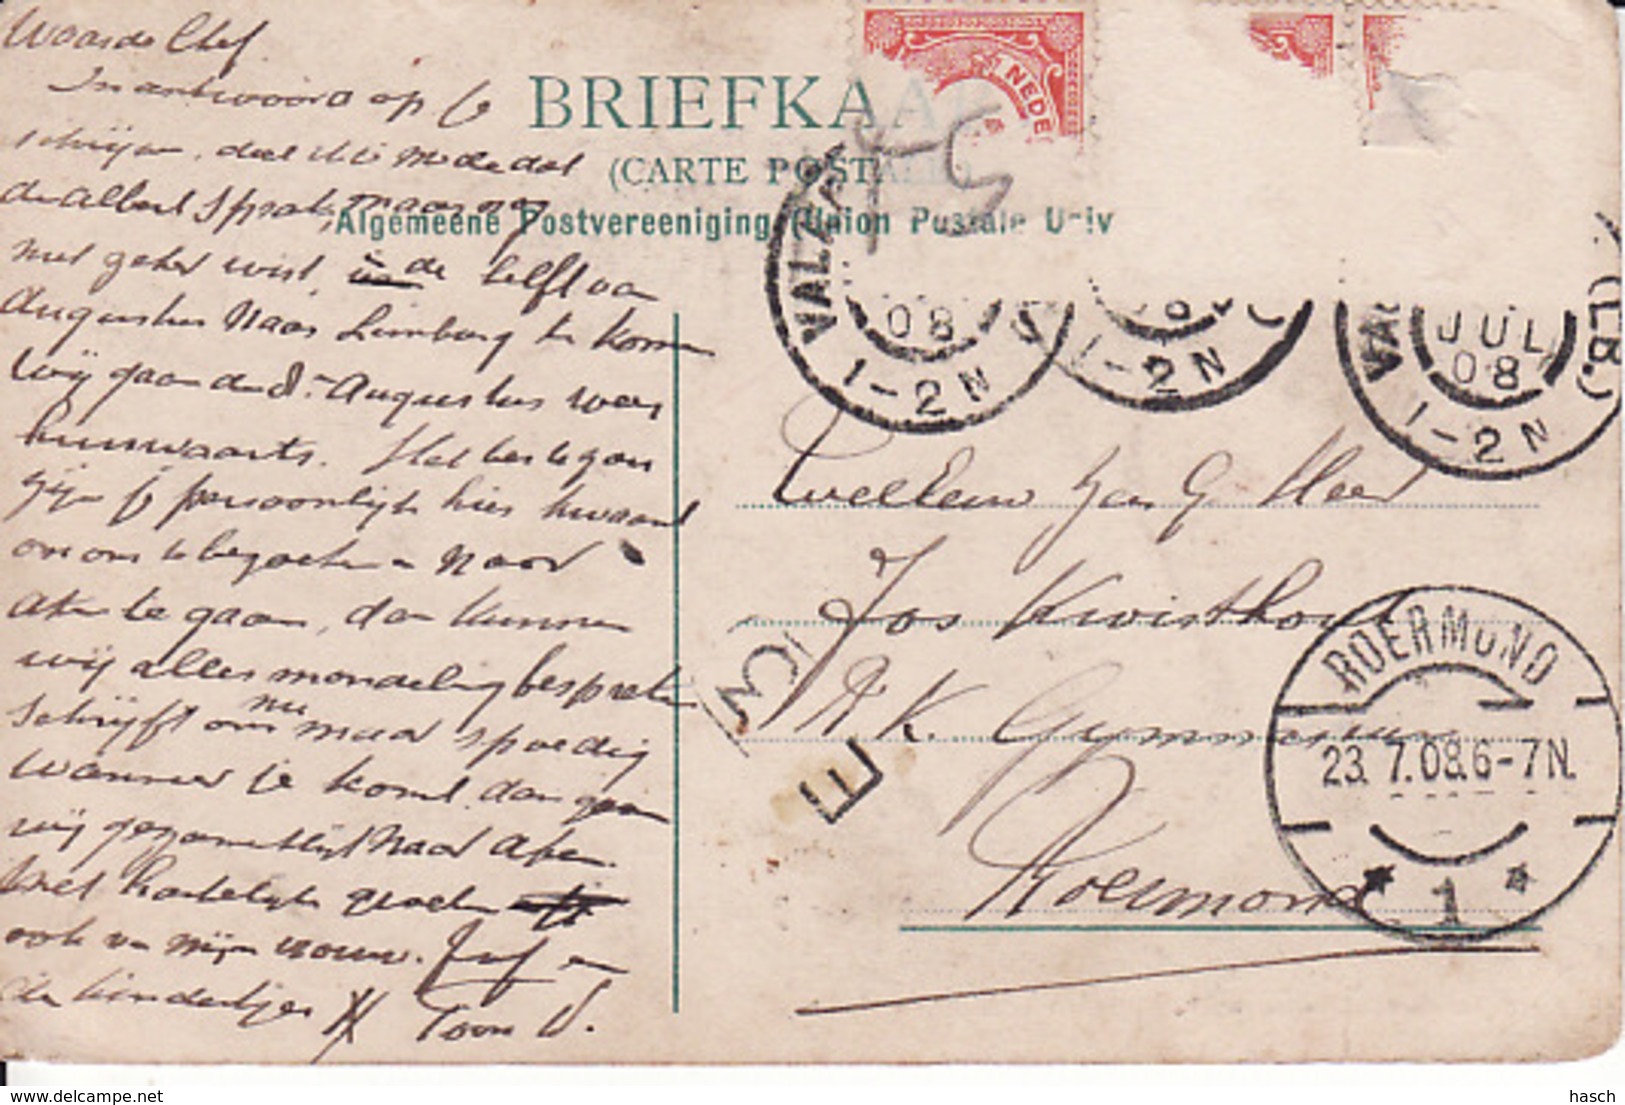 Waarde Chef.
In antwoord op
schrijven, deel ik U mede dat
de Albert sprak, maar nog
niet zeker wist, in de helft van
Augustus naar Limburg te komen
Wij gaan den 8n Augustus weer
huiswaarts. Het beste zou
zijn persoonlijk hier
om ons te bezoeken en naar
Aken te gaan, dan kunnen
wij alles mondeling bespreken
Schrijft me maar spoedig
wanneer U komt, dan gaan
wij gezamentlijk naar Aken.
Met hartelijke groeten
ook van mijn vrouw. Juf en
de kindertjes Toon
BRIEFKAA
(CARTE POSTALE)
Algemeene Postvereeniging (Union Postale Univ
NEDE
VALK
08
1-2N
1-2N
VA
JUL
08
1-2N
(LB.)
WelEerw. Heer
Jos Kwisthout
R. K. Gymnasium
Roermond
ROERMOND
23.7.08.6-7N.
1
hasch